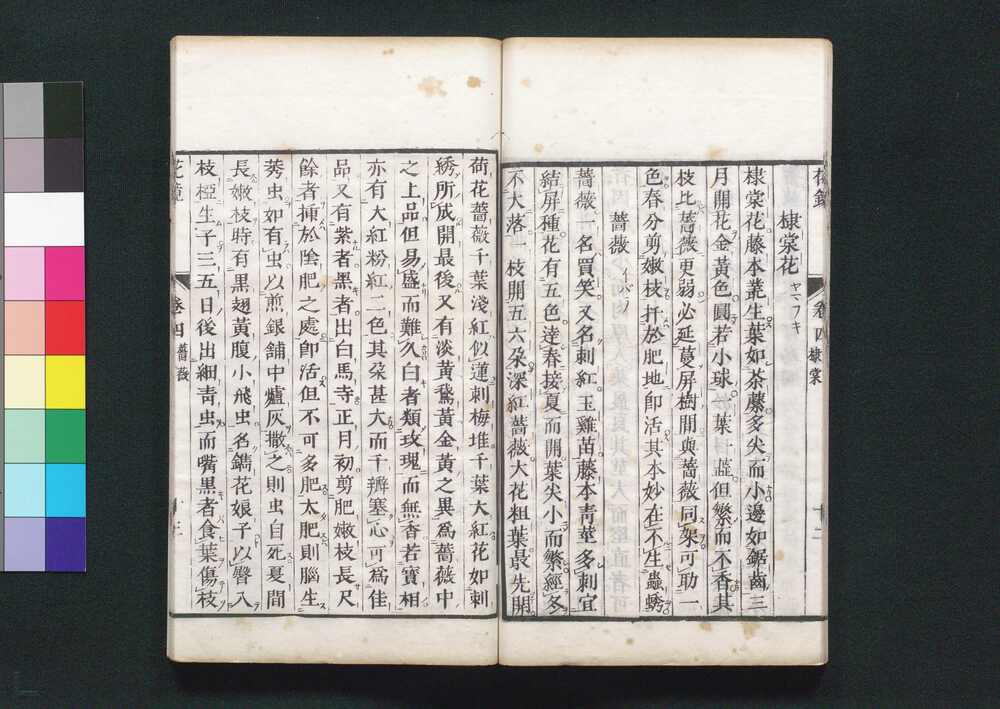 花鏡 卷四棣棠 十二
棣棠花 ヤマフキ
棣棠花藤本叢生葉如荼藤多尖而小邊如鋸齒三
月開花金黃色圓若小球一葉一蕋但繁而不香其
枝比薔薇更弱必延蔓屏樹間與薔薇同架可助一
色春分剪嫩枝扦於肥地卽活其本妙在不生蟲蟒
薔薇 イバラ
薔薇一名買笑又名刺紅玉雞苗藤本靑莖多刺宜
結屏種花有五色達春接夏而開葉尖小而繁經冬
不大落一枝開五六朶深紅薔薇大花粗葉最先開
荷花薔薇千葉淺紅似蓮刺梅堆千葉大紅花如刺
綉所成開最後又有淡黃鵞黃金黃之異爲薔薇中
之上品但易盛而難久白者類玫瑰而無香若寶相
亦有大紅粉紅二色其朶甚大而千瓣塞心可爲佳
品又有紫者黑者出白馬寺正月初剪肥嫩枝長尺
餘者揷於陰肥之處卽活但不可多肥太肥則腦生
莠虫如有虫以煎銀舖中爐灰撒之則虫自死夏間
長嫩枝時有黑翅黃腹小飛虫名鐫花娘子以臀入
枝椏生子三五日後出細靑虫而嘴黑者食葉傷枝
花鏡 卷四薔薇 十三